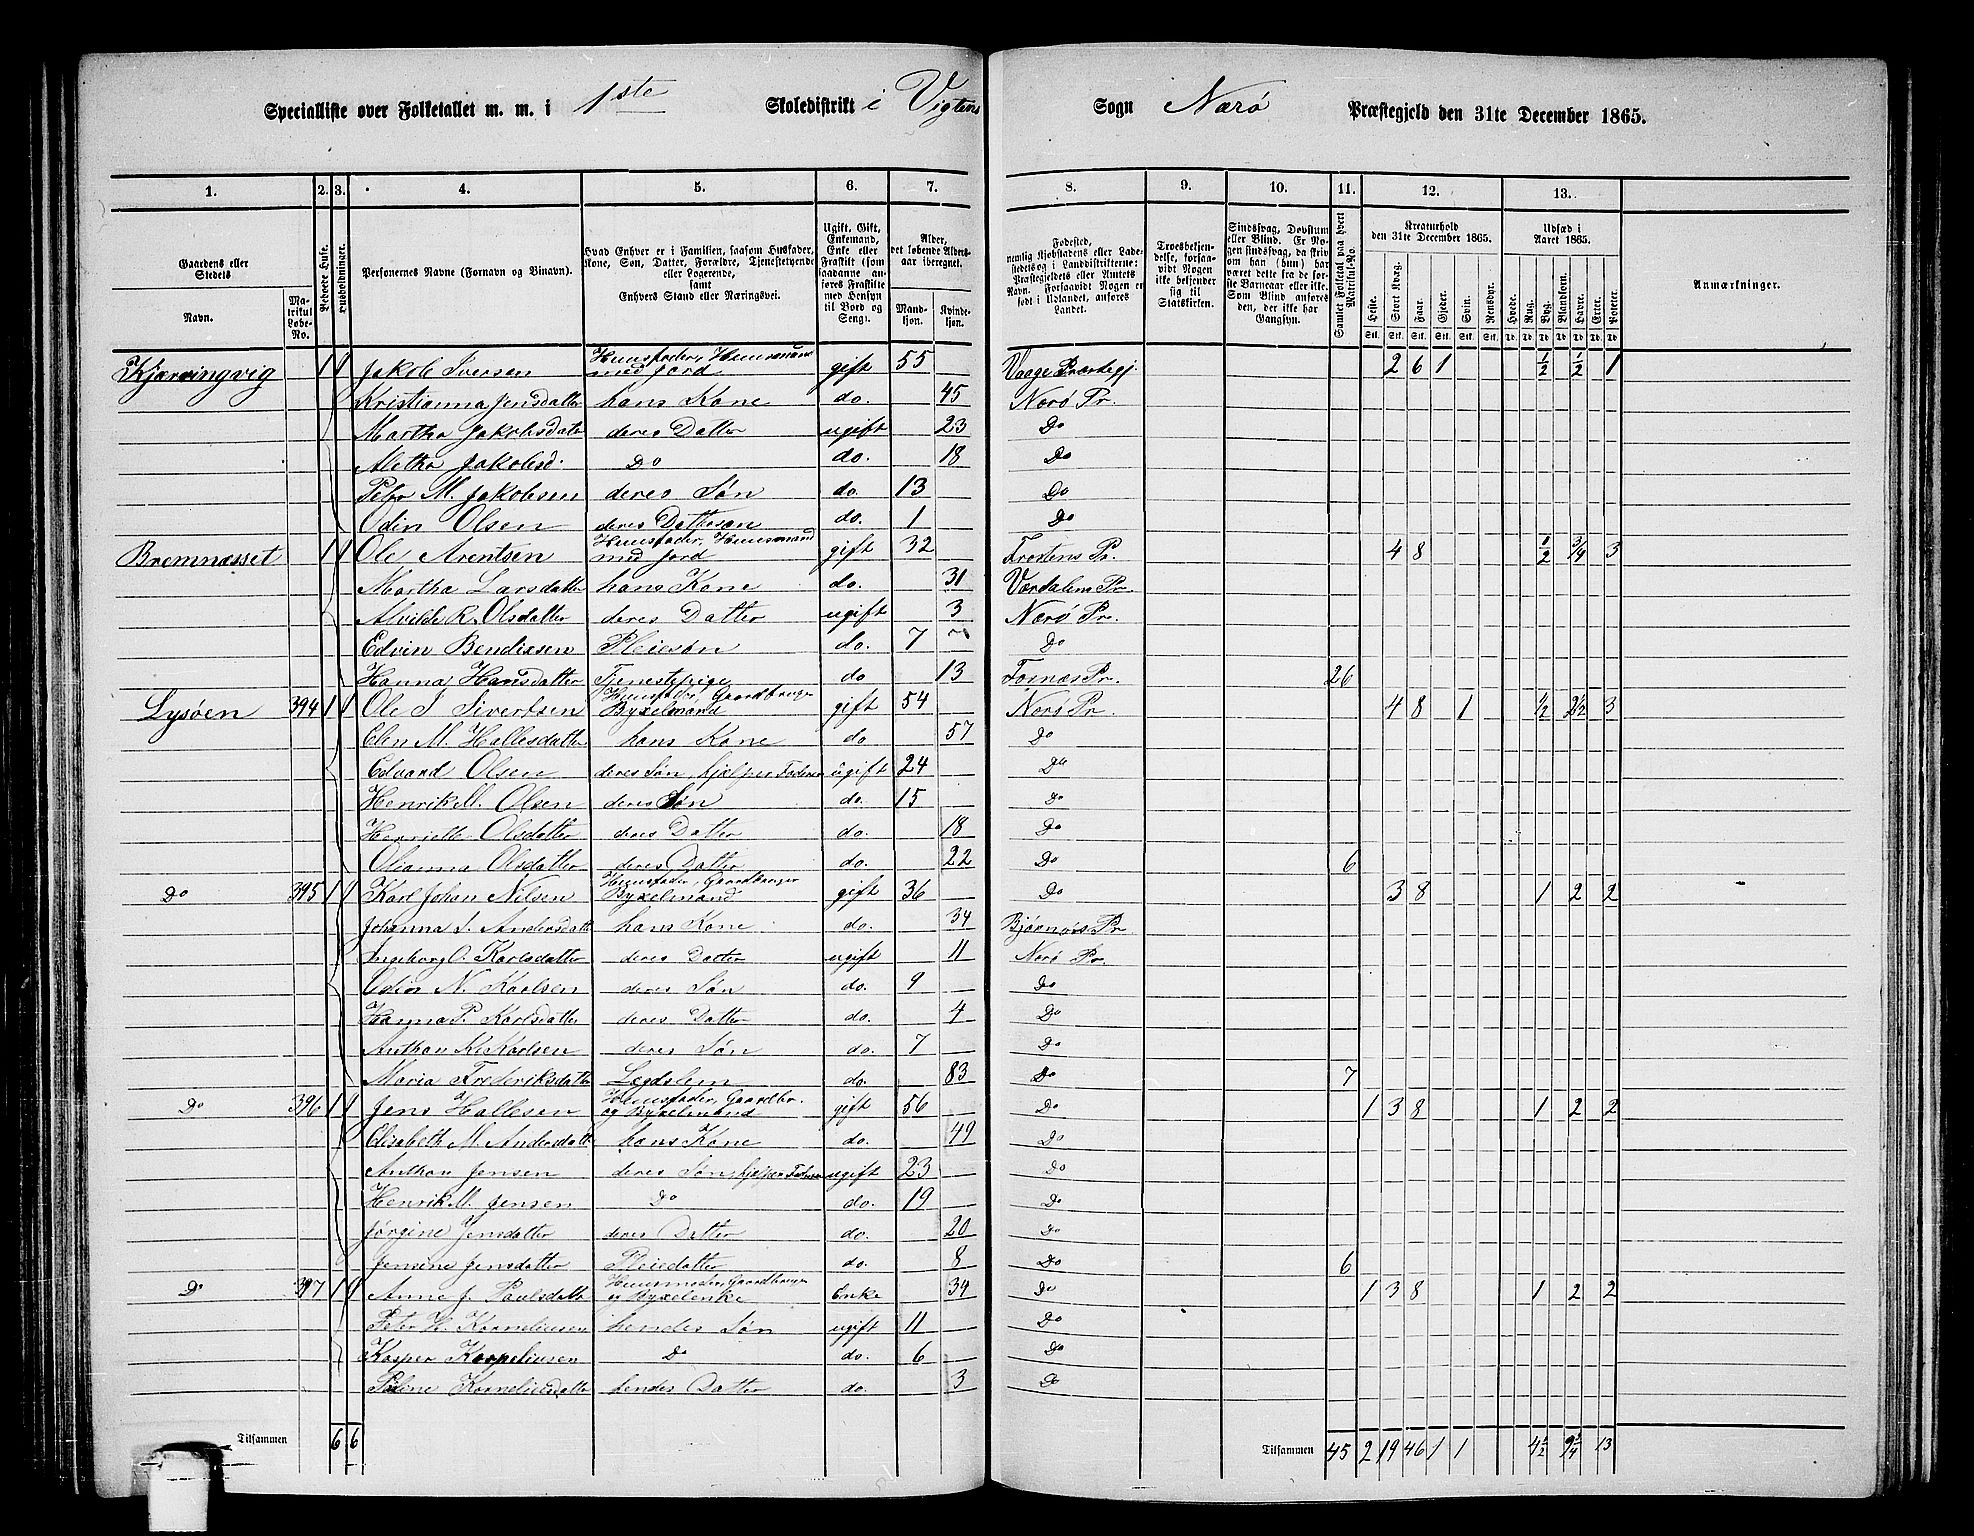 Specialliste over Folketallet m. m. i 1ste Skoledistrikt i Vigtens Sogn Nærø Præstegjeld den 31te December 1865.
1. 2. 3. 4. 5. 6. 7. 8. 9. 10. 11. 12. 13.
Gaardens eller Stedets
Navn.
Matrikul Løbe-No.
Beboede Huse.
Husholdninger.
Personernes Navne (Fornavn og Binavn).
Hvad Enhver er i Familien, saasom Husfader, Kone, Søn, Datter, Forældre, Tjenestetyende eller Logerende, samt Enhvers Stand eller Næringsvei.
Ugift, Gift, Enkemand, Enke eller Fraskilt (som saadanne anføres Fraskilte med Hensyn til Bord og Seng).
Alder, det løbende Aldersaar iberegnet.
Mandkjøn. Kvindekjøn.
Fødested, nemlig Kjøbstadens eller Ladestedets og i Landdistrikterne: Præstegjeldets eller Annexets Navn. Forsaavidt Nogen er født i Udlandet, anføres Landet.
Troesbekjendelse, forsaavidt Nogen ikke bekjender sig til Statskirken.
Sindssvag, Døvstum eller Blind. Er Nogen sindssvag, da skriv om han (hun) har været dette fra de første Barneaar eller ikke. Som Blind anføres den, der ikke har Gangsyn.
Samlet Folketal paa hvert Matrikul-No.
Kreaturhold den 31te December 1865.
Heste. Stort Kvæg. Faar. Gjeder. Svin. Rensdyr.
Udsæd i Aaret 1865.
Hvede. Rug. Byg. Blandkorn. Havre. Erter. Poteter.
Anmærkninger.
Kjærringvig 1 1 Jakob Iversen Huusfader, Huusmand med Jord gift 55 Vaage Præstegj. 2 6 1 1/2 1/2 1
Kristianna Jensdatter hans Kone do. 45 Nærø Pr.
Martha Jakobsdater deres Datter ugift 23 Do
Aletha Jakobsd. Do do. 18 Do
Peter M. Jakobsen deres Søn do. 13 Do
Odin Olsen deres Dattersøn do. 1 Do
Bremnæsset 1 1 Ole Arentsen Huusfader, Huusmand med Jord gift 32 Frostens Pr. 4 8 1/2 3/4 3
Martha Larsdatter hans Kone do. 31 Værdalens Pr.
Alvilde R. Olsdatter deres Datter ugift 3 Nærø Pr.
Edvin Bendixsen Pleiesøn do. 7 Do
Hanna Hansdatter Tjenestepige do 13 Fosnæs Pr. 26
Lysøen 394 1 1 Ole J Sivertsen Huusfader, Gaardbruger Byxelmand gift 54 Nærø Pr. 4 8 1 1/2 2 1/2 3
Elen M. Hallesdatter hans Kone do 57 Do
Edvard Olsen deres Søn, hjelper Faderen ugift 24 Do
Henrik M. Olsen deres Søn do. 15 Do
Henriette Olsdatter deres Datter do. 18 Do
Olianna Olsdatter deres Datter do. 22 Do 6
Do 395 1 1 Karl Johan Nilsen Huusfader, Gaardbruger Byxelmand gift 36 Do 3 8 1 2 2
Johanna S. Andersdatt hans Kone do. 34 Bjørnørs Pr.
Ingeborg O. Karlsdatter deres Datter ugift 11 Nærø Pr.
Odin N. Karlsen deres Søn do. 9 Do
Hanna P. Karlsdatter deres Datter do. 4 Do
Anthon K. Karlsen deres Søn do. 7 Do
Maria Frederiksdatter Lægdslem do. 83 Do 7
Do 396 1 1 Jens Hallesen Huusfader, Gaardbr. og Byxelmand gift 56 Do 1 3 8 1 2 2
Elisabeth M. Andersdatt. hans Kone do. 49 Do
Anthon Jensen deres Søn, hjelper Faderen ugift 23 Do
Henrik M. Jensen Do do. 19 Do
Jørgine Jensdatter deres Datter do. 20 Do
Jensine Jensdatter Pleiedatter do. 8 Do 6
Do 397 1 1 Anne J. Paulsdatt. Huusmoder, Gaardbruger og Byxelenke Enke 34 Do 1 3 8 1 2 2
Peter H. Korneliussen hendes Søn ugift 11 Do
Kasper Korneliusen Do do. 6 Do
Petrine Korneliusdatter hendes Datter do. 3 Do
Tilsammen 6 6 Tilsammen 45 2 19 46 1 1 4 1/2 9 1/4 13